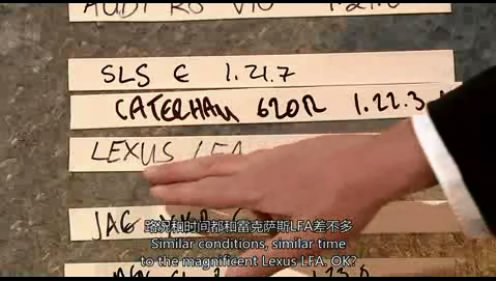 AUDI R8 V10
SLS E 1.21.7
CATERHAM 620R 1.22.3
LEXUS LFA
JAG
路况和时间都和雷克萨斯LFA差不多
Similar conditions, similar time
to the magnificent Lexus LFA, OK?